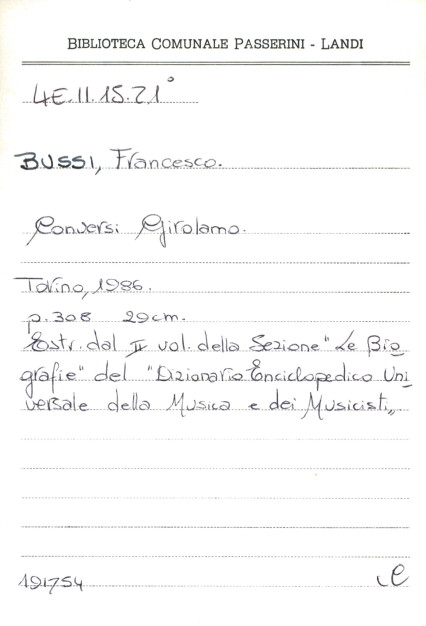 BIBLIOTECA COMUNALE PASSERINI - LANDI
4E.II.15.21°
BUSSI, Francesco.
Conversi Girolamo.
Torino, 1986.
p.308 29cm.
Estr. dal II vol. della Sezione "Le Bio
grafie" del "Dizionario Enciclopedico Uni
versale della Musica e dei Musicisti„
191754